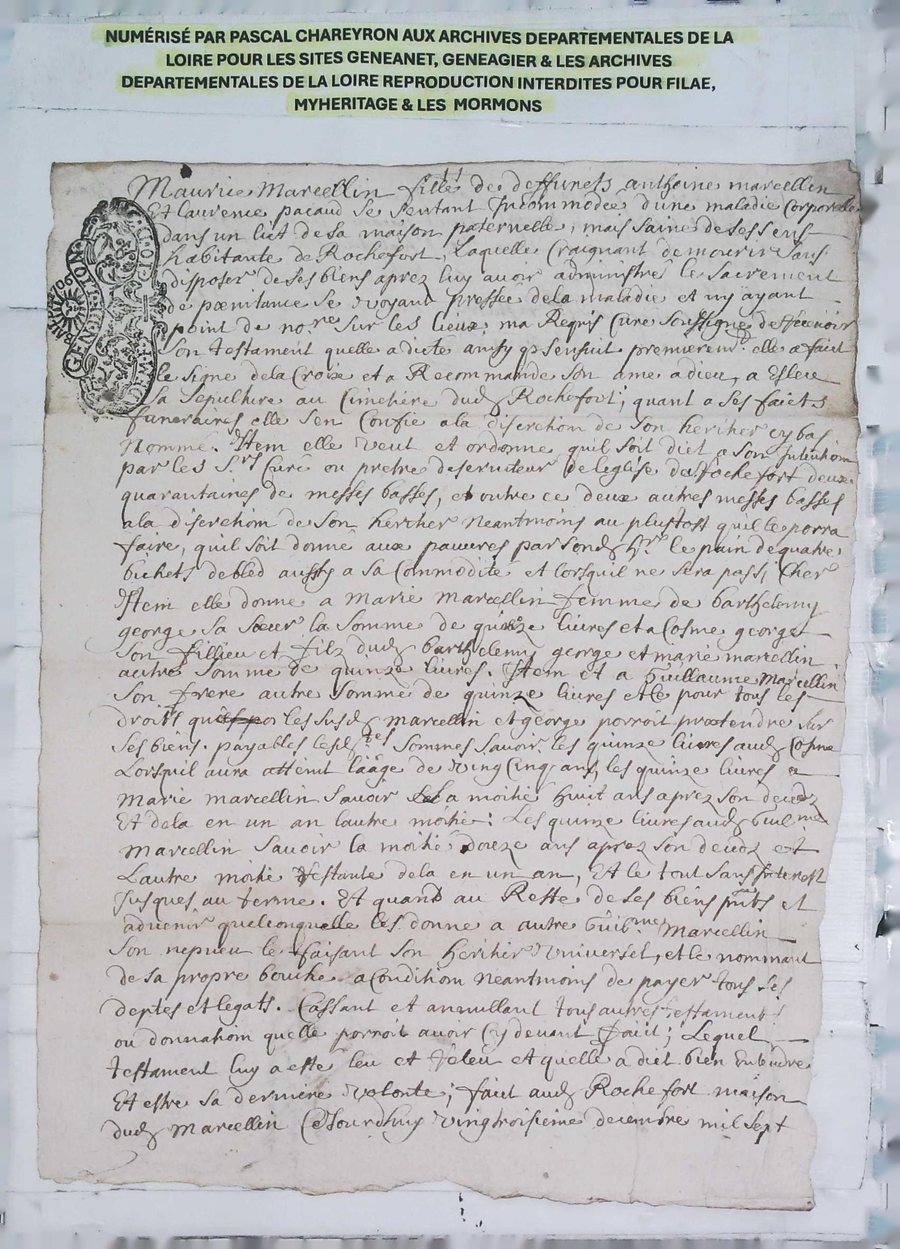 NUMÉRISÉ PAR PASCAL CHAREYRON AUX ARCHIVES DEPARTEMENTALES DE LA
LOIRE POUR LES SITES GENEANET, GENEAGIER & LES ARCHIVES
DEPARTEMENTALES DE LA LOIRE REPRODUCTION INTERDITES POUR FILAE,
MYHERITAGE & LES MORMONS
Maurice Marcellin fille de deffuncts anthoine marcellin
Et laurence pacaud se sentant Incommodée d'une maladie Corporelle
dans un lict de sa maison paternelle, mais saine de ses sens
habitante de Rochefort, Laquelle Craignant de mourir sans
disposer de ses biens aprez luy avoir administré le sacrement
de pœnitance se voyant pressée de la maladie et ny ayant
point de nore sur les lieux, ma Requis Curé soussigné de
son testament quelle a dicté ainsy qs sensuit premieremt elle a faict
le signe de la Croix et a Recommandé son ame a dieu, a Esleu
sa sepulture au Cimetiere dud Rochefort; quant a ses faicts
funeraires elle sen Confie a la discretion de son heritier cy bas
Nommé. Item elle veut et ordonne quil soit dict a son Intention
par les Srs Curé ou pretre deservateur de leglise de Rochefort deux
quarantaines de messes basses, et outre ce deux autres messes basses
a la discretion de son heritier Neantmoins au plustost quil le porra
faire, quil soit donné aux pauvres par sond hr le pain de quatre
bichets de bled aussy a sa Commodité et lorsquil ne sera pas si Cher
Item elle donne a Marie Marcellin femme de barthelemy
george sa sœur la somme de quinze livres et a Cosme george
son fillieu et filz dud barthelemy george et marie marcellin
autre somme de quinze livres. Item et a Guillaume Marcellin
son frere autre somme de quinze livres et ce pour tous les
droits que les susd marcellin et george porroit prætendre sur
ses biens. payables lesdtes sommes savoir les quinze livres aud Cosme
Lorsquil aura atteint l'aage de vingt Cinq ans, les quinze livres a
Marie marcellin savoir la moitié huit ans aprez son decedz
Et dela en un an lautre moitié: Les quinze livres aud Guilme
Marcellin savoir la moitié douze ans aprez son decedz et
Lautre moitié restante dela en un an, Et le tout sans Interest
Jusques au terme. Et quand au Reste de ses biens pnts et
advenir quelconque elle les donne a autre Guilme Marcellin
son nepveu le faisant son heritier Universel, et le nommant
de sa propre bouche a Condition neantmoins de payer tous ses
deptes et legats. Cassant et annullant tous autres testaments
ou donnation quelle porroit avoir Cy devant fait; Lequel
testament luy a esté leu et releu et quelle a dict bien Entendre
Et estre sa derniere volonté; faict aud Rochefort maison
dud Marcellin Cejourdhuy vingtroisieme decembre mil sept